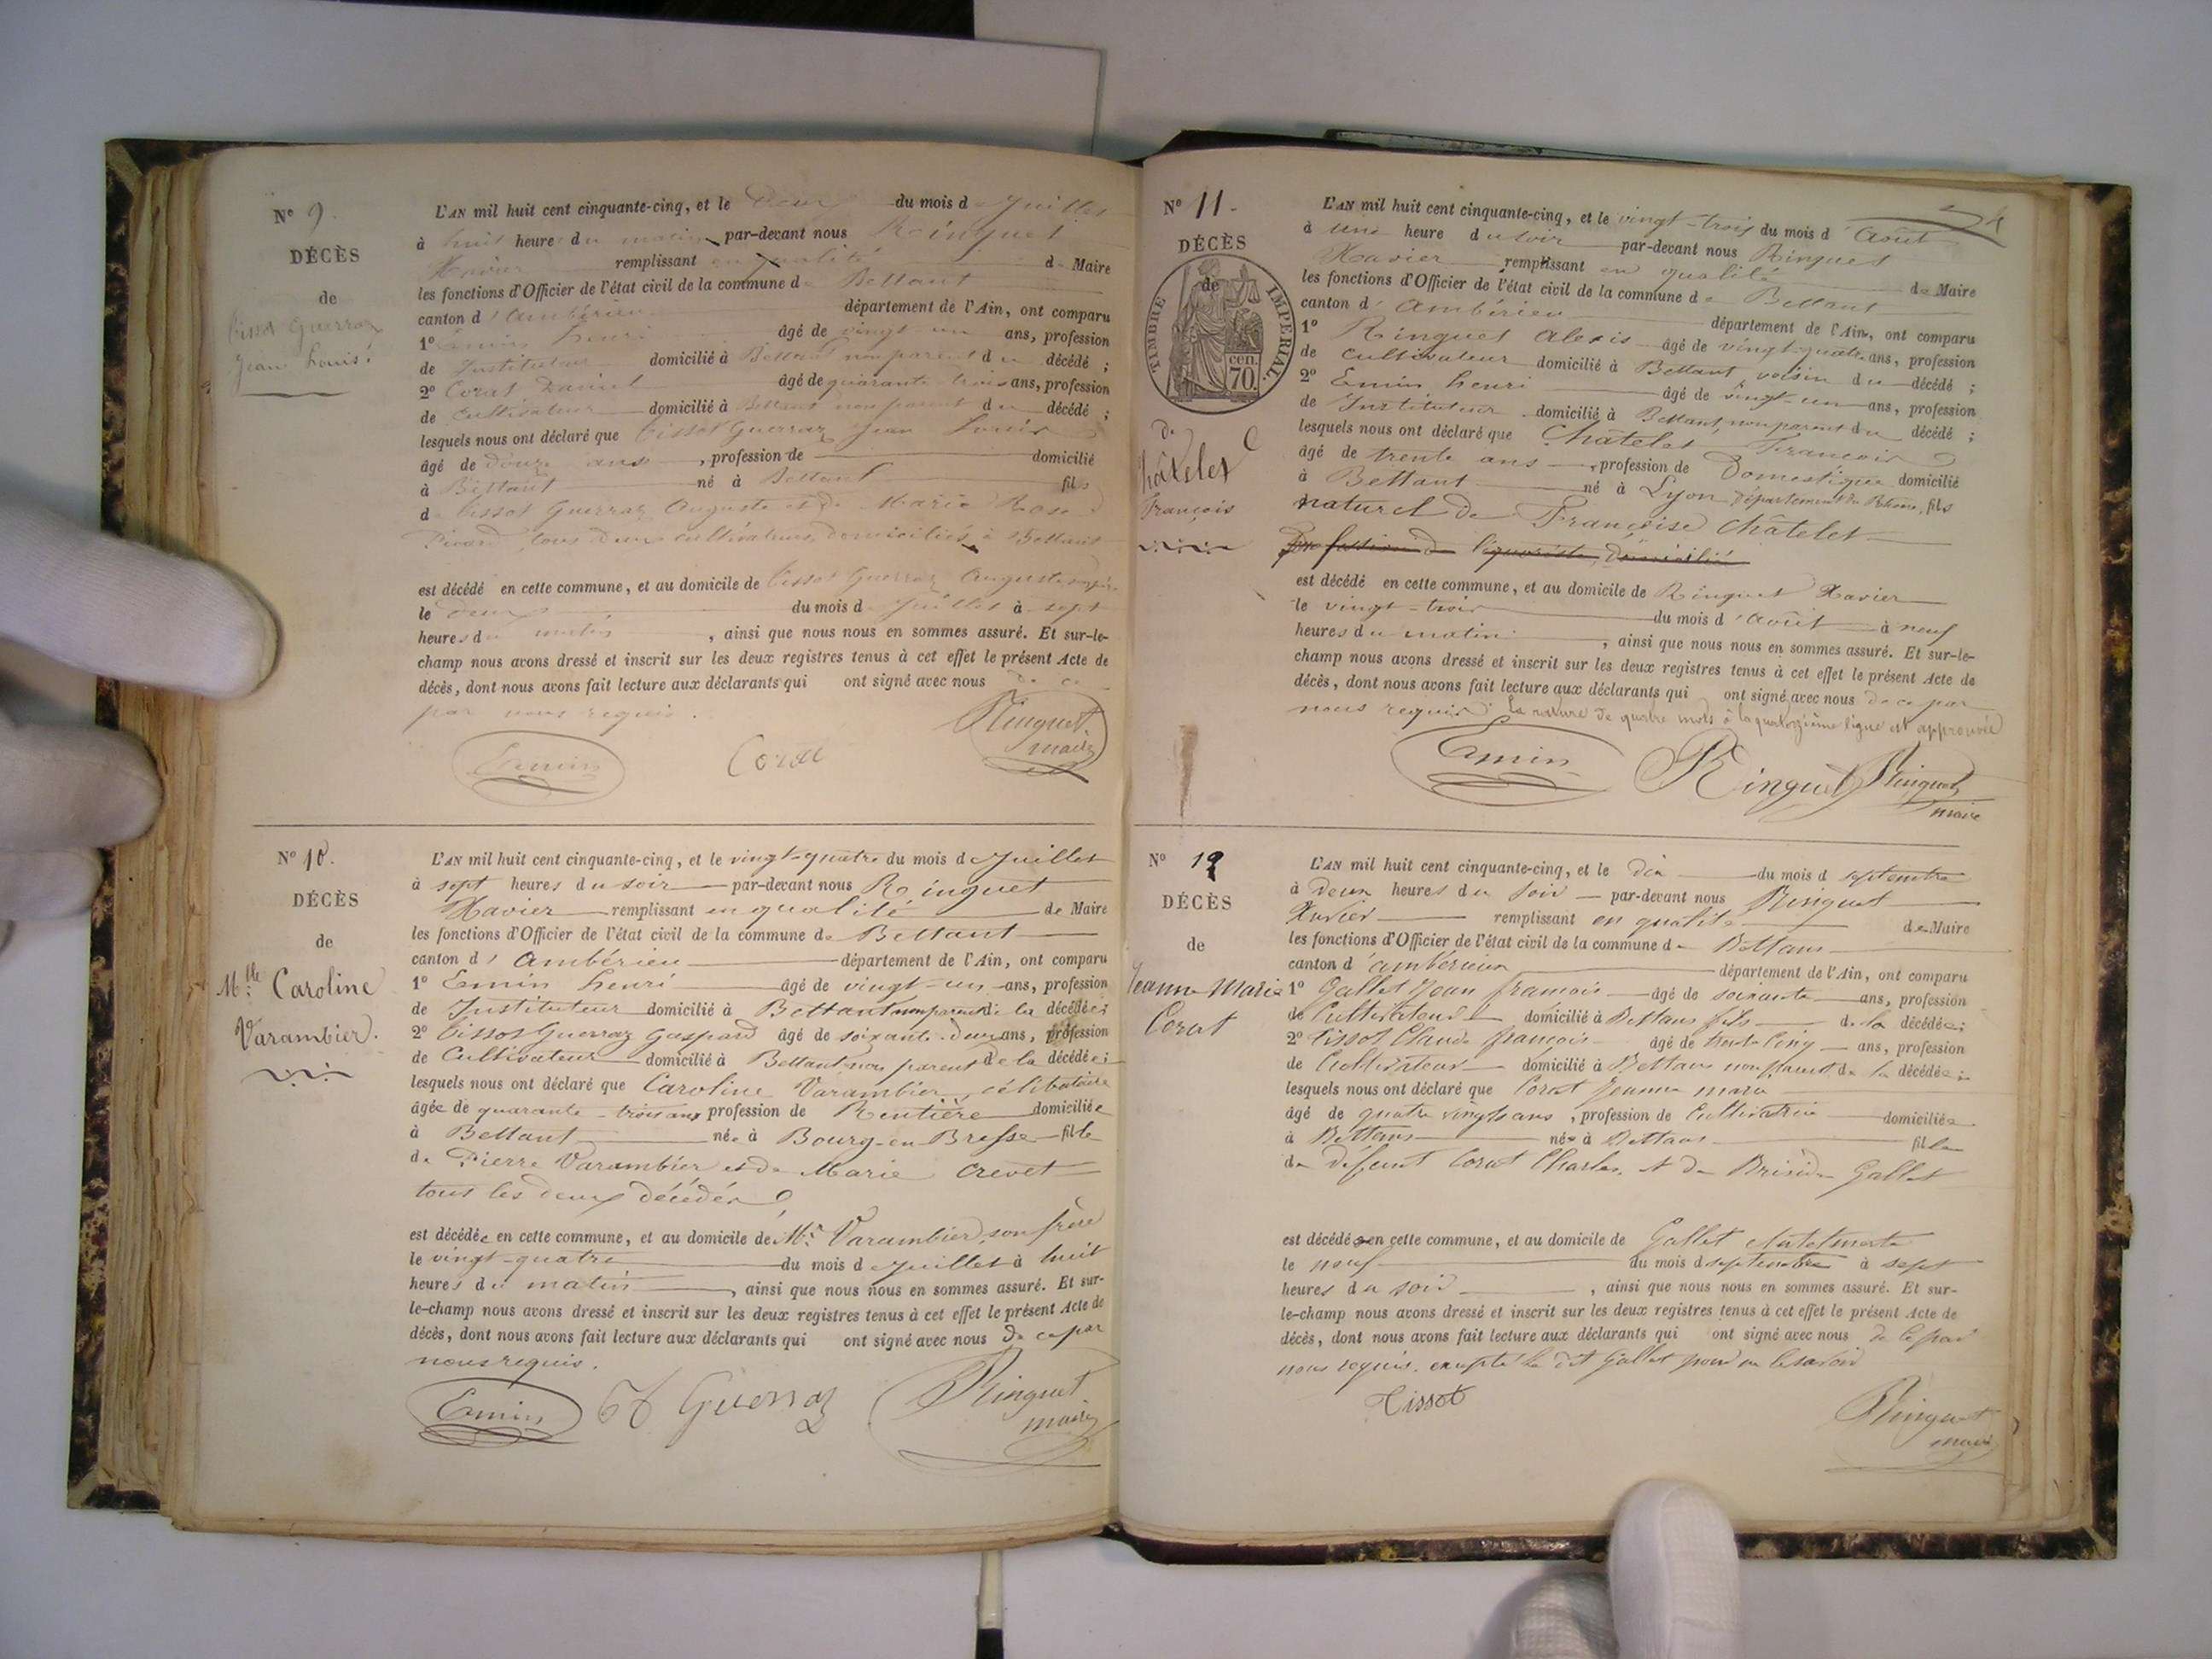 Nº 9.
DÉCÈS
de
Tissot Guerraz
Jean Louis.
L'AN mil huit cent cinquante-cinq, et le Deux du mois de Juillet
à huit heures du matin par-devant nous Ringuet
Xavier remplissant en qualité de Maire
les fonctions d'Officier de l'état civil de la commune de Bettant
canton d'Ambérieu département de l'Ain, ont comparu
1º Emin henri âgé de vingt-un ans, profession
de Instituteur domicilié à Bettant non parent du décédé ;
2º Corat Daniel âgé de quarante trois ans, profession
de Cultivateur domicilié à Bettant non parent du décédé ;
lesquels nous ont déclaré que Tissot Guerraz Jean Louis
âgé de douze ans, profession de domicilié
à Bettant né à Bettant fils
de Tissot Guerraz Auguste et de Marie Rose
Picard, tous deux cultivateurs, domiciliés à Bettant
est décédé en cette commune, et au domicile de Tissot Guerraz Auguste
le deux du mois de Juillet à sept
heures du matin, ainsi que nous nous en sommes assuré. Et sur-le-
champ nous avons dressé et inscrit sur les deux registres tenus à cet effet le présent Acte de
décès, dont nous avons fait lecture aux déclarants qui ont signé avec nous de ce
par nous requis.
Emin Corat Ringuet
maire
Nº 10.
DÉCÈS
de
Mlle Caroline
Varambier.
L'AN mil huit cent cinquante-cinq, et le vingt-quatre du mois de Juillet
à sept heures du soir par-devant nous Ringuet
Xavier remplissant en qualité de Maire
les fonctions d'Officier de l'état civil de la commune de Bettant
canton d'Ambérieu département de l'Ain, ont comparu
1º Emin henri âgé de vingt-un ans, profession
de Instituteur domicilié à Bettant non parent de la décédée ;
2º Tissot Guerraz Gaspard âgé de soixante-deux ans, profession
de Cultivateur domicilié à Bettant non parent de la décédée ;
lesquels nous ont déclaré que Caroline Varambier, célibataire
âgée de quarante-trois ans profession de Rentière domiciliée
à Bettant née à Bourg-en-Bresse fille
de Pierre Varambier et de Marie Crevet
tous les deux décédés
est décédée en cette commune, et au domicile de Mr. Varambier, son frère
le vingt-quatre du mois de Juillet à huit
heures du matin, ainsi que nous nous en sommes assuré. Et sur-
le-champ nous avons dressé et inscrit sur les deux registres tenus à cet effet le présent Acte de
décès, dont nous avons fait lecture aux déclarants qui ont signé avec nous de ce par
nous requis.
Emin Guerraz Ringuet
maire
Nº 11.
DÉCÈS
de
TIMBRE IMPÉRIAL.
cen.
70.
de
Châtelet
François
L'AN mil huit cent cinquante-cinq, et le vingt-trois du mois d'Août
à une heure du soir par-devant nous Ringuet
Xavier remplissant en qualité de Maire
les fonctions d'Officier de l'état civil de la commune de Bettant
canton d'Ambérieu département de l'Ain, ont comparu
1º Ringuet Alexis âgé de vingt-quatre ans, profession
de Cultivateur domicilié à Bettant, voisin du décédé ;
2º Emin henri âgé de vingt-un ans, profession
de Instituteur domicilié à Bettant, non parent du décédé ;
lesquels nous ont déclaré que Châtelet François
âgé de trente ans, profession de Domestique domicilié
à Bettant né à Lyon, département du Rhône, fils
naturel de Françoise Châtelet
profession de liquoriste, domicilié
est décédé en cette commune, et au domicile de Ringuet Xavier
le vingt-trois du mois d'Août à neuf
heures du matin, ainsi que nous nous en sommes assuré. Et sur-le-
champ nous avons dressé et inscrit sur les deux registres tenus à cet effet le présent Acte de
décès, dont nous avons fait lecture aux déclarants qui ont signé avec nous de ce par
nous requis. la rature de quatre mots à la quatorzième ligne est approuvée
Emin Ringuet Ringuet
maire
Nº 12
DÉCÈS
de
Jeanne Marie
Corat
L'AN mil huit cent cinquante-cinq, et le dix du mois d septembre
à deux heures du soir par-devant nous Ringuet
Xavier remplissant en qualité de Maire
les fonctions d'Officier de l'état civil de la commune de Bettans
canton d'ambérieux département de l'Ain, ont comparu
1º Gallet Jean françois âgé de soixante ans, profession
de Cultivateur domicilié à Bettans fils de la décédée ;
2º Tissot Claude françois âgé de trente cinq ans, profession
de Cultivateur domicilié à Bettans non parent de la décédée ;
lesquels nous ont déclaré que Corat Jeanne marie
âgé de quatre vingts ans, profession de Cultivatrice domiciliée
à Bettans née à Bettans fille
de deffunt Corat Charles et de Gallet
est décédée en cette commune, et au domicile de Gallet
le neuf du mois d septembre à sept
heures du soir, ainsi que nous nous en sommes assuré. Et sur-
le-champ nous avons dressé et inscrit sur les deux registres tenus à cet effet le présent Acte de
décès, dont nous avons fait lecture aux déclarants qui ont signé avec nous de ce par
nous requis. excepté le dit Gallet pour ne le savoir
Tissot Ringuet
maire